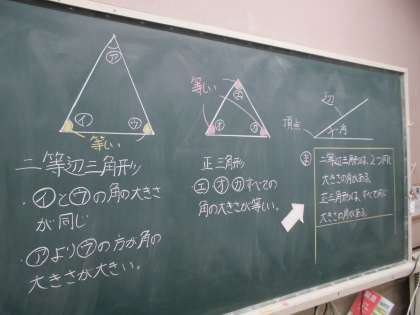 ㋐
㋑
㋒
等しい
二等辺三角形
・㋑と㋒の角の大きさ
が同じ
・㋐より㋒の方が角の
大きさが大きい。
等しい
㋓
㋔
㋕
正三角形
㋓㋔㋕すべての
角の大きさが等しい。
辺
頂点
角
ま
二等辺三角形は、2つ同じ
大きさの角がある。
正三角形は、すべて同じ
大きさの角がある。